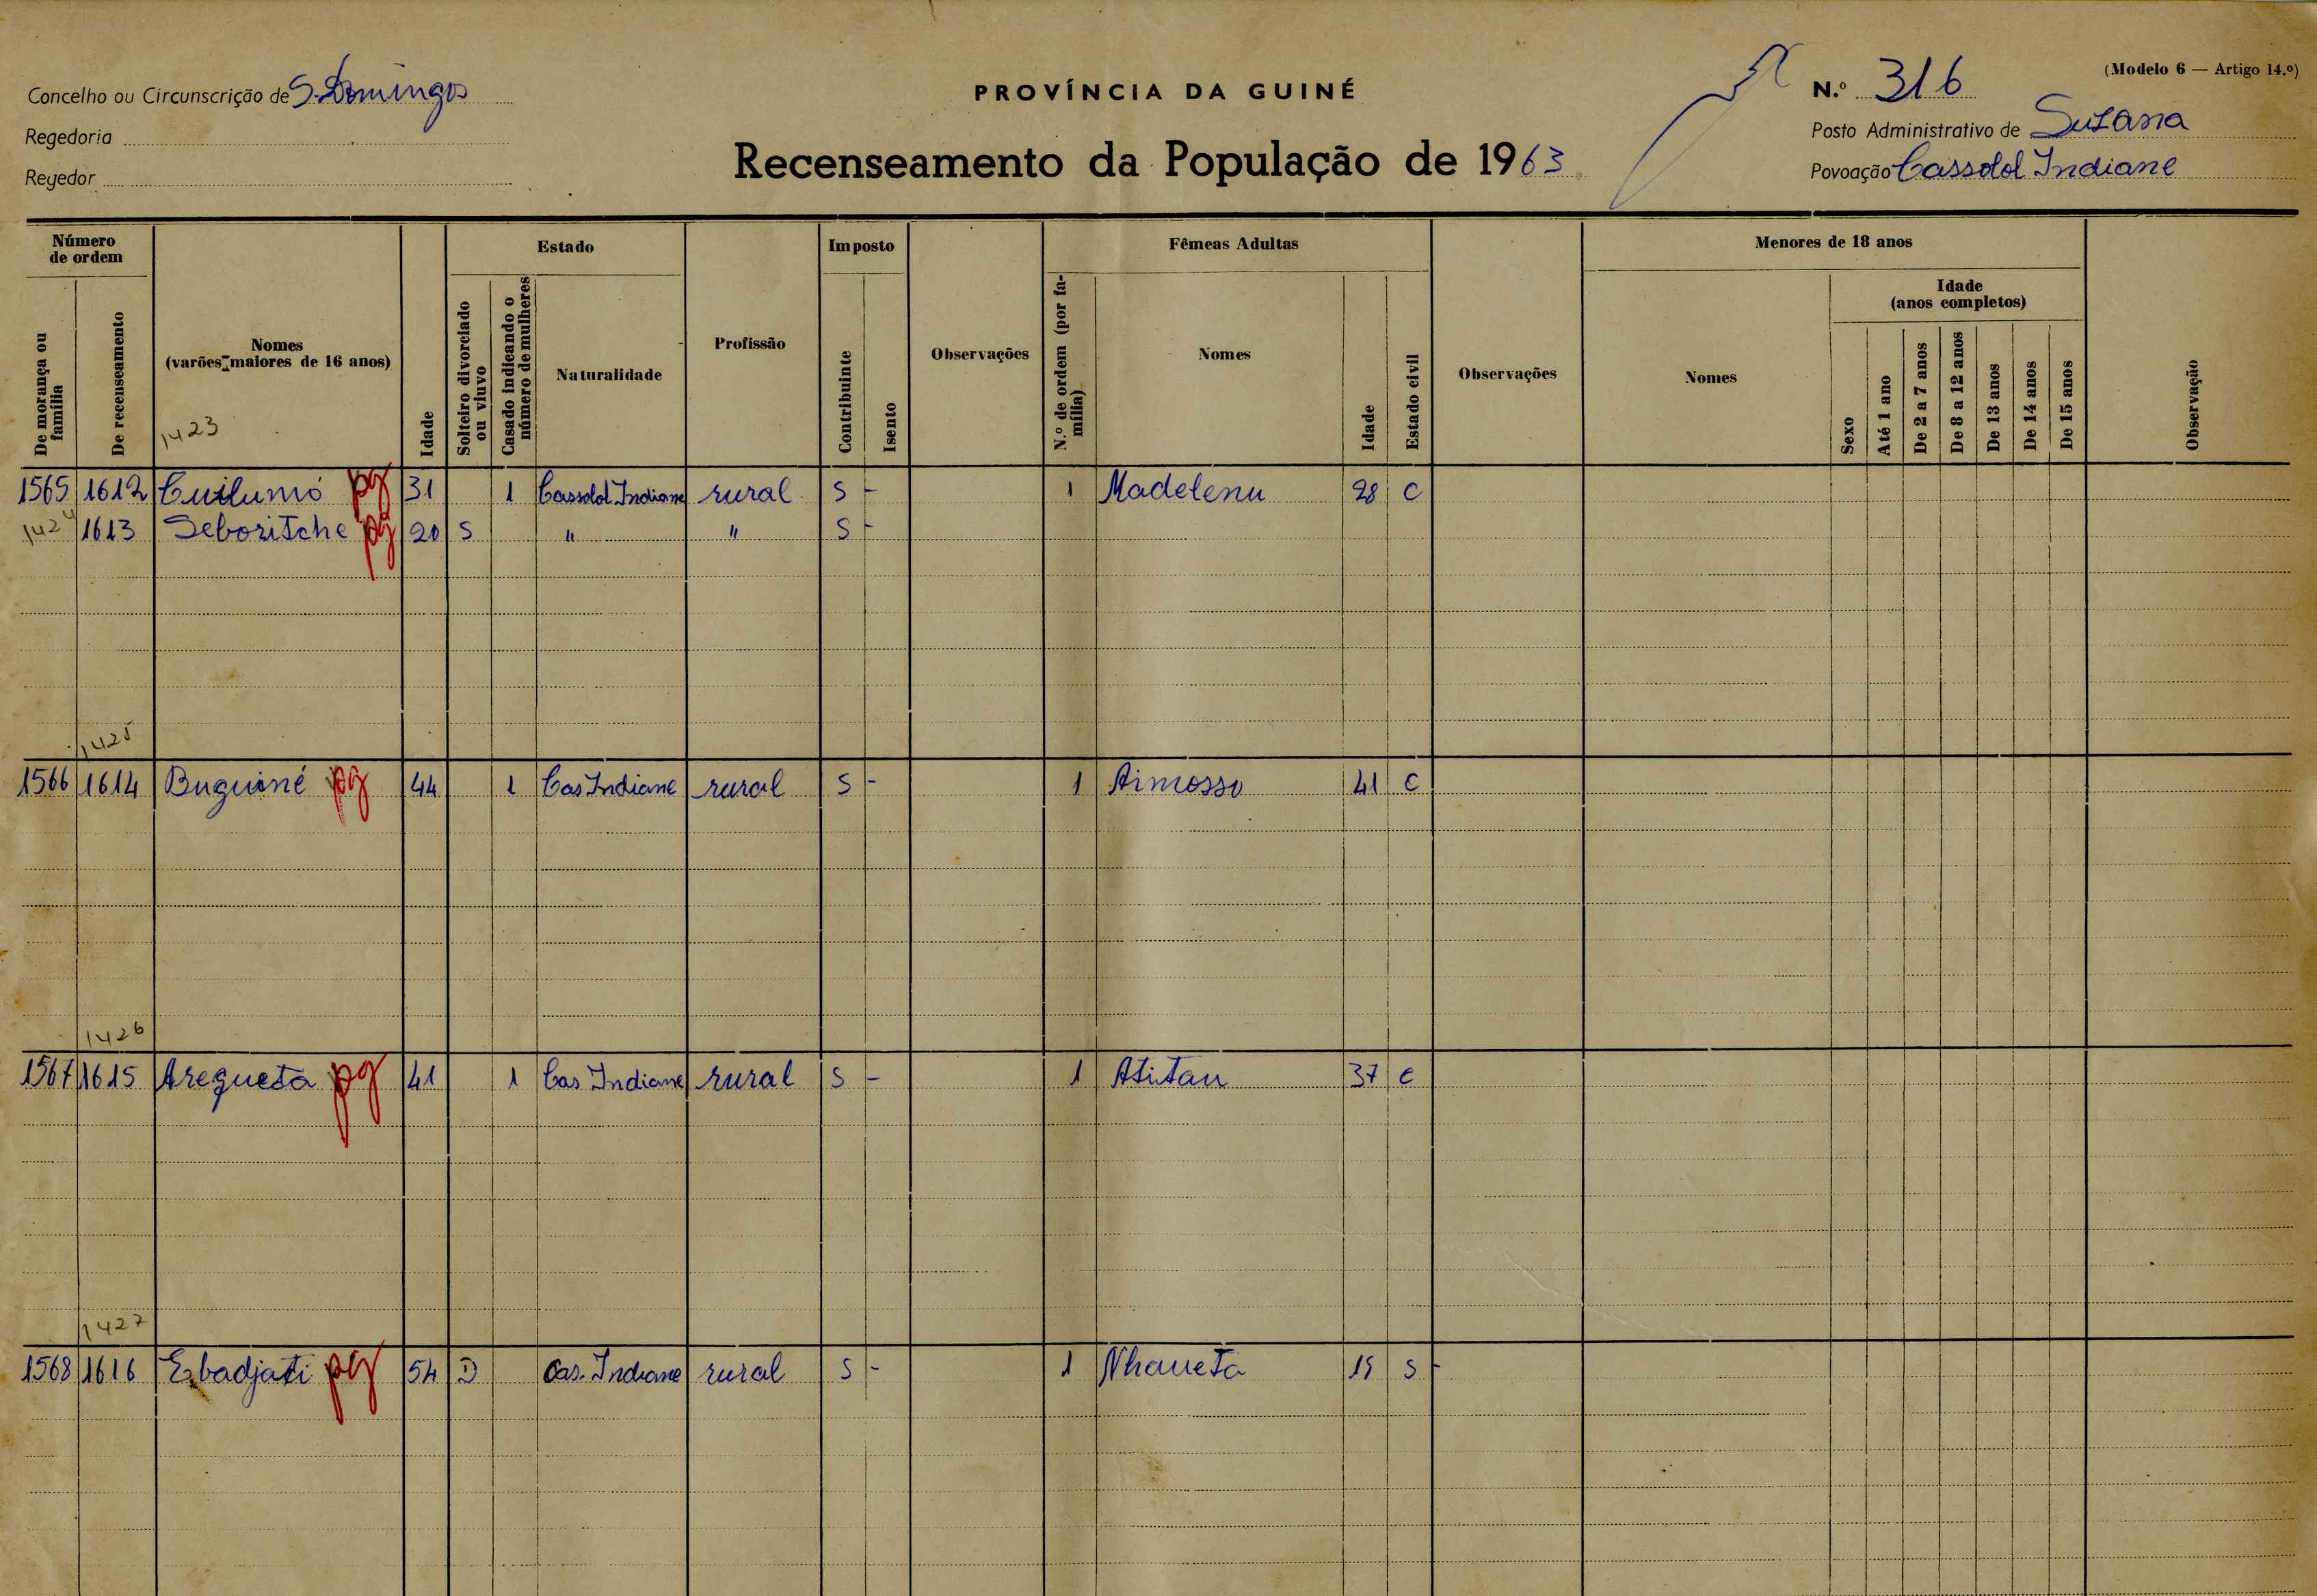 Concelho ou Circunscrição de S. Domingos
Regedoria
Regedor
PROVÍNCIA DA GUINÉ
Recenseamento da População de 1963
(Modelo 6 — Artigo 14.º)
N.º 316
Posto Administrativo de Suzana
Povoação Cassolol Indiane
Número de ordem
De morança ou família
De recenseamento
Nomes (varões maiores de 16 anos)
1423
Idade
Estado
Solteiro divorciado ou viuvo
Casado indicando o número de mulheres
Naturalidade
Profissão
Imposto
Contribuinte
Isento
Observações
Fêmeas Adultas
N.º de ordem (por família)
Nomes
Idade
Estado civil
Observações
Menores de 18 anos
Nomes
Sexo
Idade (anos completos)
Até 1 ano
De 2 a 7 anos
De 8 a 12 anos
De 13 anos
De 14 anos
De 15 anos
Observação
1565 1612 Cuilumó pg 31 1 Cassolol Indiane rural S - 1 Madelenu 28 C
1424 1613 Seboritche pg 20 S " " S -
1425
1566 1614 Buguiné pg 44 1 Cas Indiane rural S - 1 Aimosso 41 C
1426
1567 1615 Arequeta pg 41 1 Cas Indiane rural S - 1 Atitau 37 C
1427
1568 1616 Ebadjati pg 54 D Cas. Indiane rural S - 1 Nhaueta 19 S -